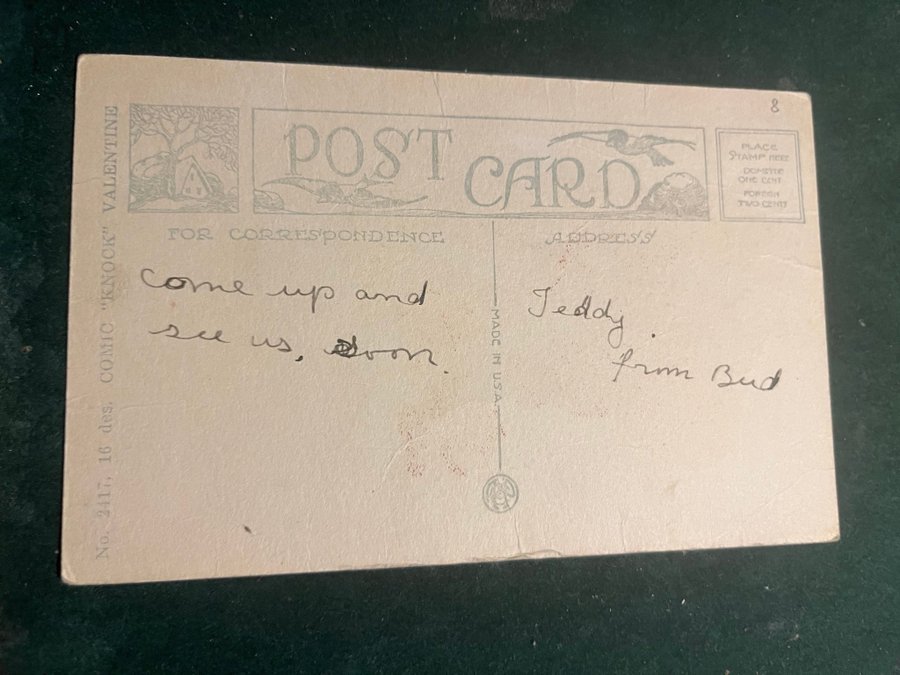 8
POST CARD
PLACE
STAMP HERE
DOMESTIC
ONE CENT
FOREIGN
TWO CENTS
FOR CORRESPONDENCE
ADDRESS
Come up and
see us, soon.
Teddy.
from Bud
MADE IN U.S.A.
No. 2417, 16 des. COMIC "KNOCK" VALENTINE